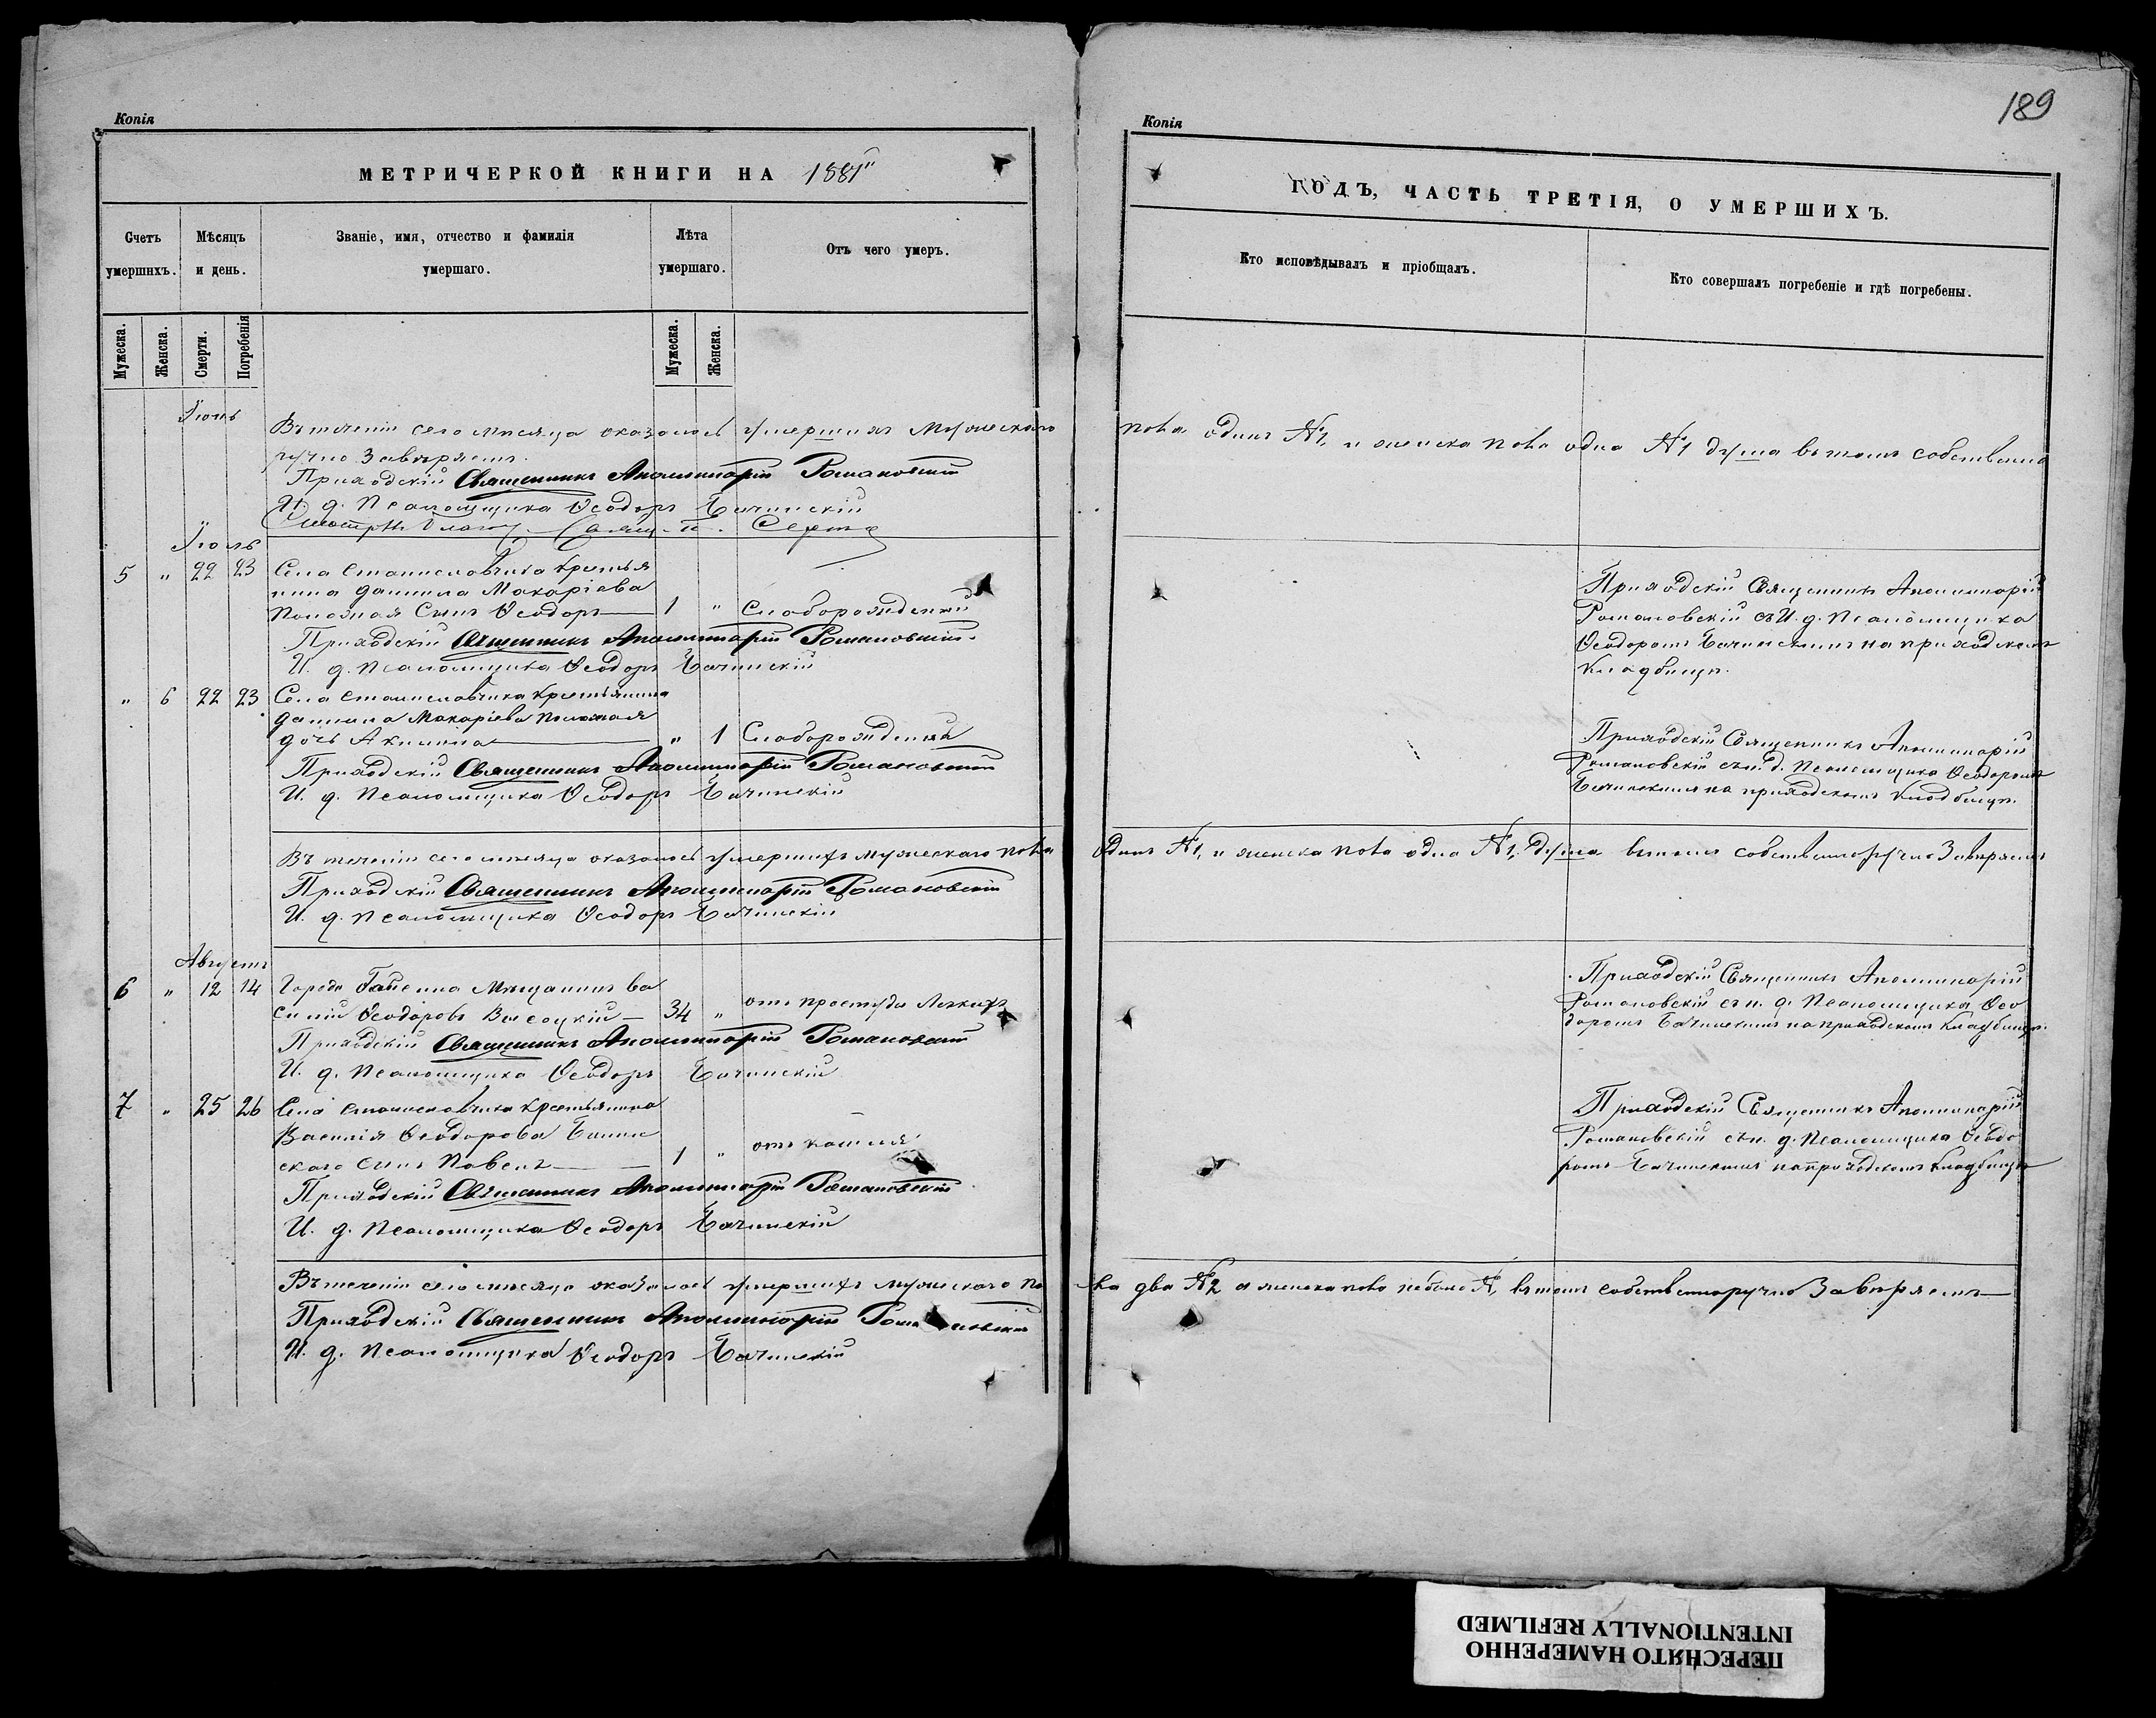 189
Копія
МЕТРИЧЕРКОЙ КНИГИ НА 1881
Счетъ умершихъ.
Мѣсяцъ и день.
Званіе, имя, отчество и фамилія умершаго.
Лѣта умершаго.
Отъ чего умеръ.
Мужеска.
Женска.
Смерти.
Погребенія
Мужеска.
Женска.
Іюнь
Въ теченіи сего мѣсяца оказалось умершихъ Мужескаго
ручно Завѣряемъ.
Приходскій Священникъ Аполлинарій Романовскій
И. д. Псаломщика Ѳеодоръ Бачинскій
Іюль
5 " 22 23 Села Станиславчика Крестья
нина Даниила Макаріева
Сынъ Ѳеодоръ 1 " Слаборожденный
Приходскій Священникъ Аполлинарій Романовскій
И. д. Псаломщика Ѳеодоръ Бачинскій
" 6 22 23 Села Станиславчика Крестьянина
Даниила Макаріева
дочь Акилина " 1 Слаборожденная
Приходскій Священникъ Аполлинарій Романовскій
И. д. Псаломщика Ѳеодоръ Бачинскій
Въ теченіи сего мѣсяца оказалось умершихъ мужескаго пола
Приходскій Священникъ Аполлинарій Романовскій
И. д. Псаломщика Ѳеодоръ Бачинскій
Августъ
6 " 12 14 Города Гайсина Мѣщанинъ Ва
силій Ѳеодоровъ Высоцкій 34 " отъ простуды Легкихъ
Приходскій Священникъ Аполлинарій Романовскій
И. д. Псаломщика Ѳеодоръ Бачинскій
7 " 25 26 Села Станиславчика Крестьянина
Василія Ѳеодорова
скаго сынъ Павелъ 1 " отъ кашля
Приходскій Священникъ Аполлинарій Романовскій
И. д. Псаломщика Ѳеодоръ Бачинскій
Въ теченіи сего мѣсяца оказалось умершихъ мужескаго по
Приходскій Священникъ Аполлинарій Романовскій
И. д. Псаломщика Ѳеодоръ Бачинскій
Копія
ГОДЪ, ЧАСТЬ ТРЕТІЯ, О УМЕРШИХЪ.
Кто исповѣдывалъ и пріобщалъ.
Кто совершалъ погребеніе и гдѣ погребены.
пола одинъ №1, и женска пола одна №1 душа въ томъ собственно
Приходскій Священникъ Аполлинарій
Романовскій съ И. д. Псаломщика
Ѳеодоромъ Бачинскимъ на приходскомъ
кладбищѣ.
Приходскій Священникъ Аполлинарій
Романовскій съ и. д. Псаломщика Ѳеодоромъ
Бачинскимъ на приходскомъ кладбищѣ.
одинъ №1, и женска пола одна №1, душа въ томъ собственноручно Завѣряемъ
Приходскій Священникъ Аполлинарій
Романовскій съ и. д. Псаломщика Ѳео
доромъ Бачинскимъ на приходскомъ кладбищѣ.
Приходскій Священникъ Аполлинарій
Романовскій съ и. д. Псаломщика Ѳеодо
ромъ Бачинскимъ на приходскомъ кладбищѣ
ла два №2 а женска пола небыло №, въ томъ собственноручно Завѣряемъ
ПЕРЕСНЯТО НАМЕРЕННО
INTENTIONALLY REFILMED